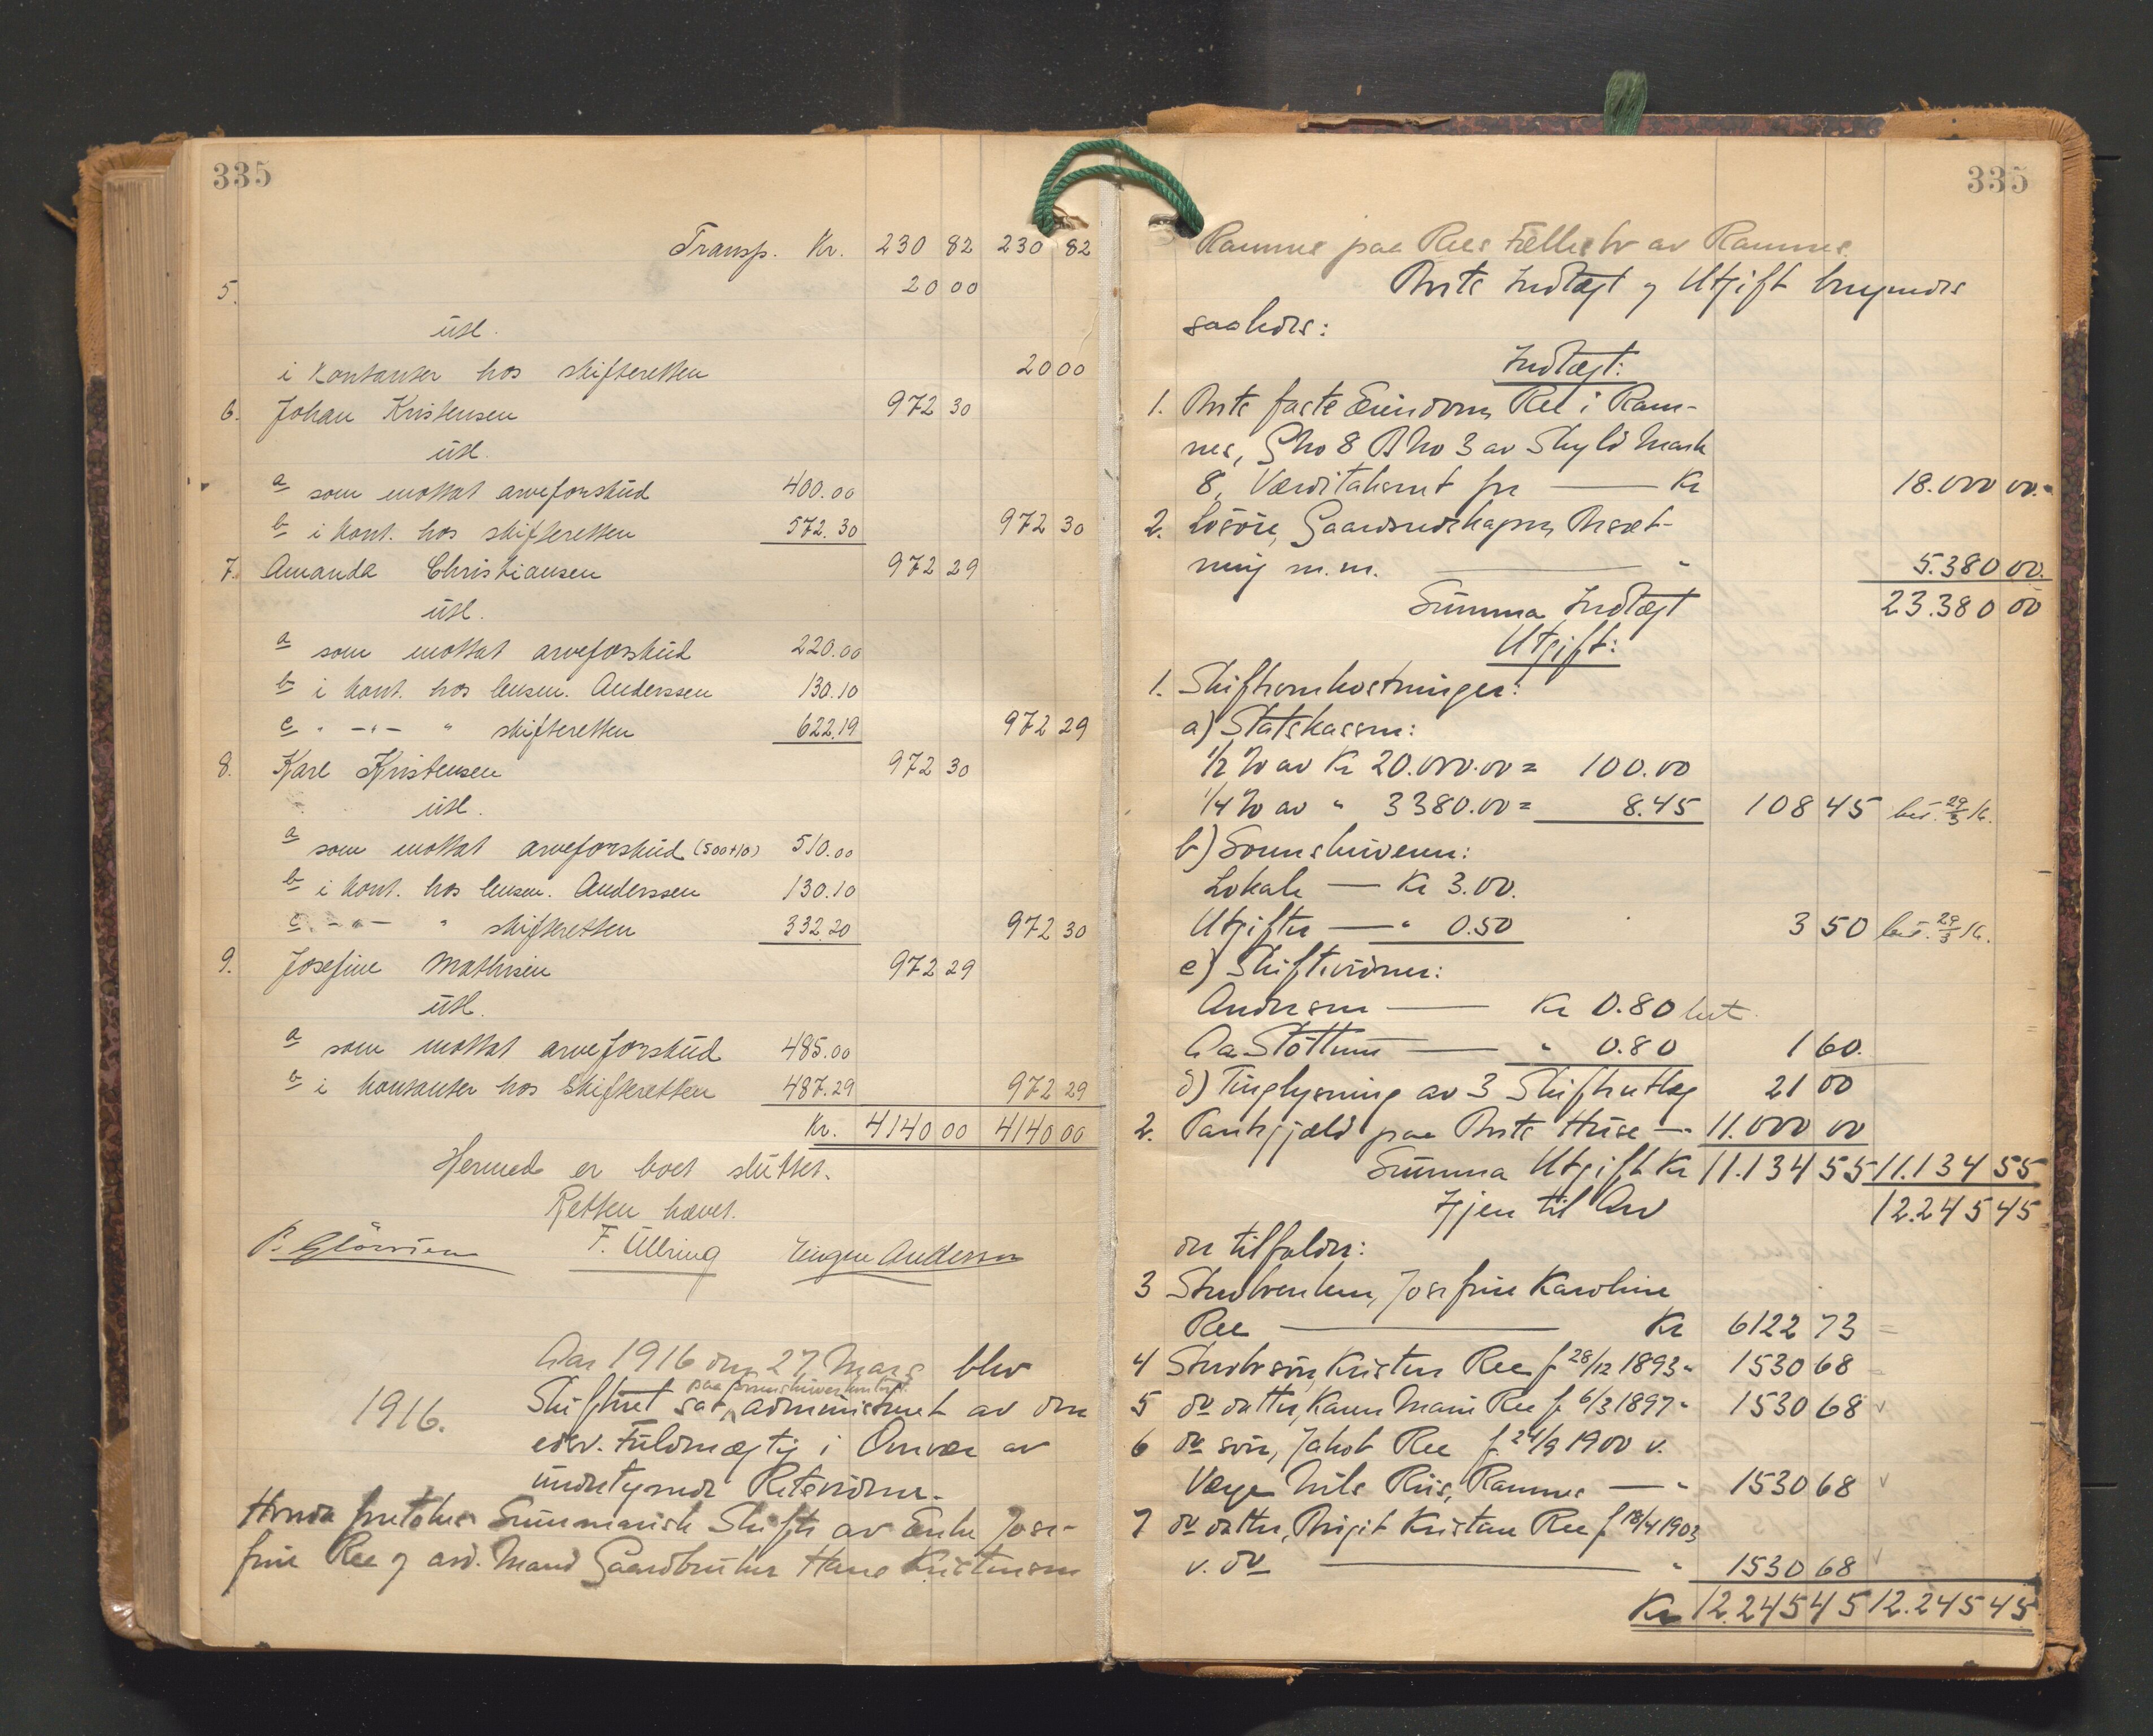 335
Transp. Kr. 230 82 230 82
5. 20 00
utl.
i kontanter hos skifteretten 20 00
6. Johan Kristensen 972 30
utl.
a som mottat arveforskud 400.00
b i kont. hos skifteretten 572.30 972 30
7. Amanda Christiansen 972 29
utl.
a som mottat arveforskud 220.00
b i kont. hos lensm. Anderssen 130.10
c " -"- " skifteretten 622.19 972 29
8. Karl Kristensen 972 30
utl.
a som mottat arveforskud (500+10) 510.00
b i kont. hos lensm. Anderssen 130.10
c " -"- " skifteretten 332.20 972 30
9. Josefine Mathisen 972 29
utl.
a som mottat arveforskud 485.00
b i kontanter hos skifteretten 487.29 972 29
Kr. 4140 00 4140 00
Hermed er boet sluttet.
Retten hævet.
F. Ullring Eugen Anderssen
Aar 1916 den 27 Mars blev
1916. Skifteret sat paa Sorenskriverkontoret administreret av den
edsv. Fuldmægtig i Overvær av
undertegnede Retsvidner.
Herunder foretokes Summarisk Skifte av Enke Jose-
fine Ree og avd. Mand Gaardbruker Hans Kristensen
335
Ramnes paa Rees Fællesbo av Ramnes.
Boets Indtægt og Utgift beregnedes
saaledes:
Indtægt:
1. Boets faste Eiendom, Ree i Ram-
nes, Gno 8 Bno 3 av Skyld Mark
8, Værditakseret for — Kr 18.000 00.
2. Løsøre, Gaardsredskaper, Besæt-
ning m.m. — " 5.380 00.
Summa Indtægt 23.380 00
Utgift:
1. Skifteomkostninger:
a) Statskassen:
1/2 % av Kr 20.000.00 = 100.00
1/4 % av " 3380.00 = 8.45 108 45 bet. 29/3 16.
b) Sorenskriveren:
Lokale — Kr 3.00.
Utgifter — " 0.50 3 50 bet. 29/3 16.
c) Skiftevidner:
Andersen — Kr 0.80 bet.
Aa Støttum — " 0.80 1 60.
d) Tinglysning av 3 Skifteutlæg 21 00
2. Pantegjæld paa Boets Huse — 11.000 00
Summa Utgift Kr 11.134 55 11.134 55
Igjen til Arv 12.245 45
der tilfalder:
3 Stervboenken, Josefine Karoline
Ree — Kr 6122 73 =
4 Stervbosøn, Kristen Ree f 28/12 1893 " 1530 68
5 do datter, Karen Marie Ree f. 6/3 1897 " 1530 68 v
6 do søn, Jakob Ree f. 24/9 1900 v.
Værge Nils Riis, Ramnes — " 1530 68 v
7 do datter, Birgit Kristane Ree f 18/4 1903
v. do — " 1530 68 v
Kr 12.245 45 12.245 45